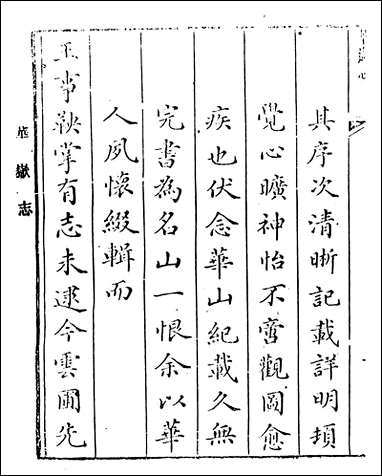 其序次清晰記載詳明頓
覺心曠神怡不啻觀圖愈
疾也伏念華山紀載久無
完書為名山一恨余以華
人夙懷綴輯而
王事鞅掌有志未逮今雲圃先
華嶽志